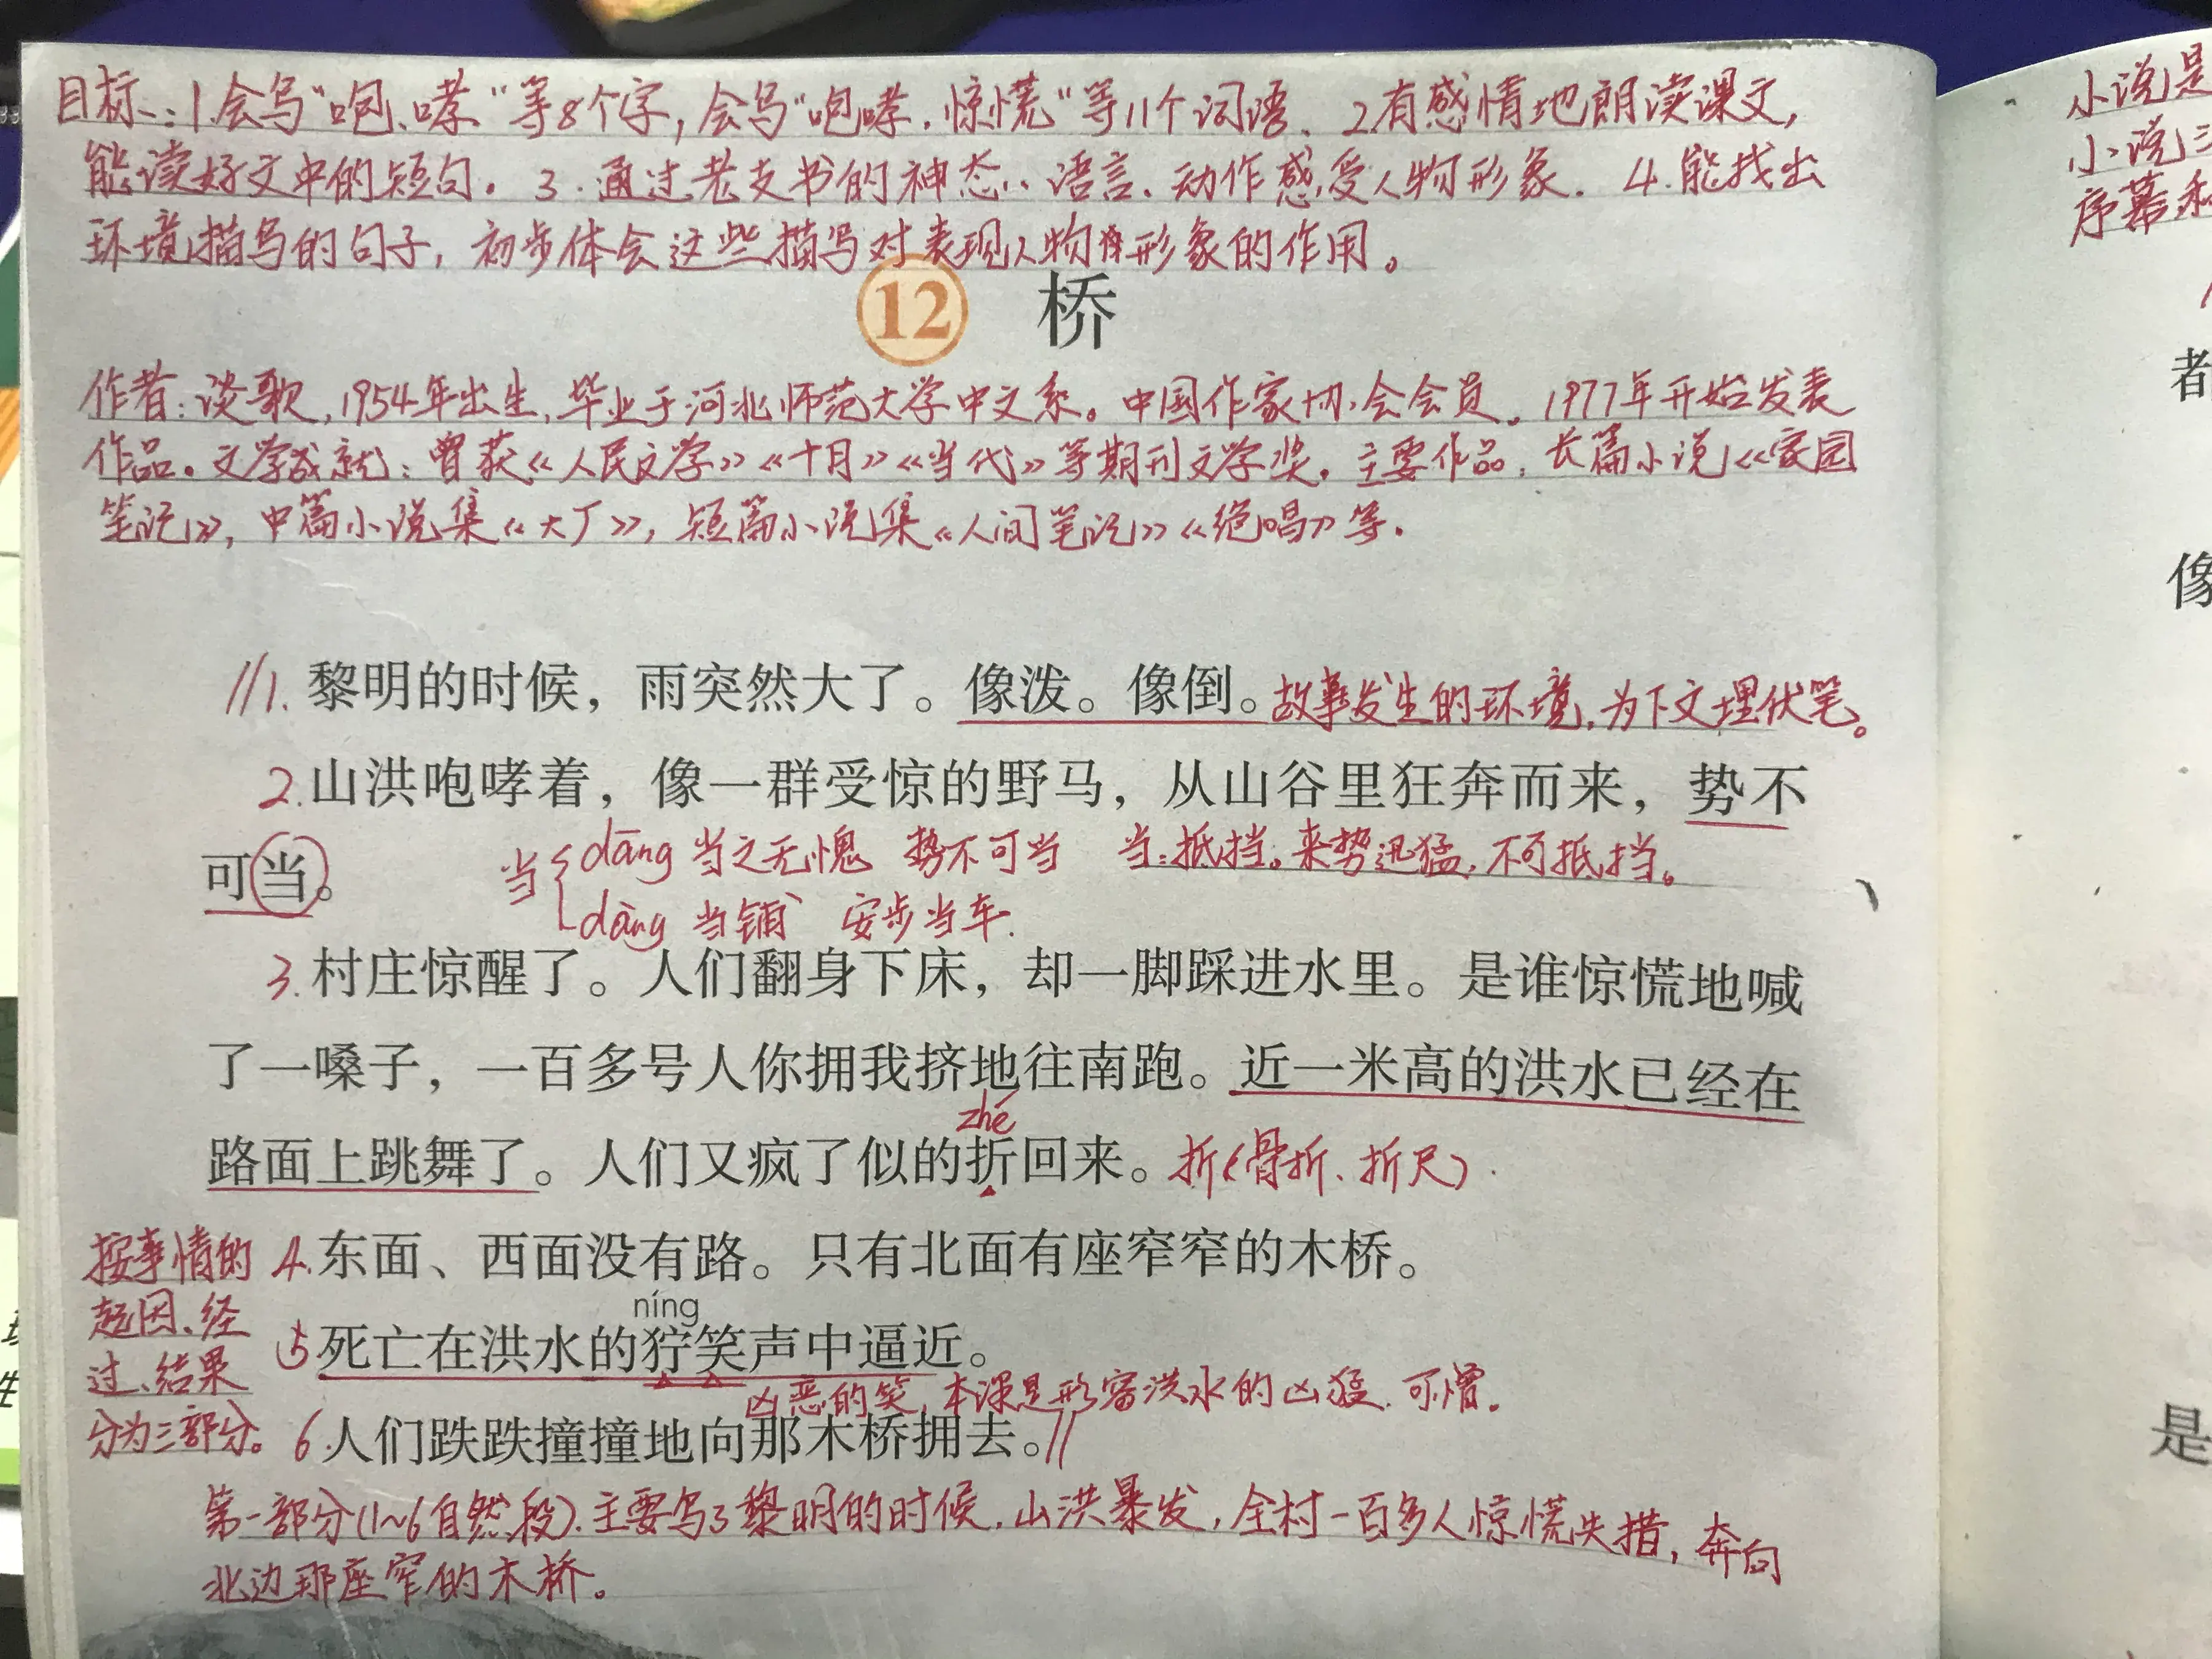 目标：1.会写“咆、哮”等8个字，会写“咆哮.惊慌”等11个词语、2.有感情地朗读课文，
能读好文中的短句。3.通过老支书的神态、语言、动作感受人物形象．4.能找出
环境描写的句子，初步体会这些描写对表现人物形象的作用。
12 桥
作者：谈歌，1954年出生，毕业于河北师范大学中文系。中国作家协会会员．1977年开始发表
作品。文学成就：曾获《人民文学》《十月》《当代》等期刊文学奖．主要作品：长篇小说《家园
笔记》，中篇小说集《大厂》，短篇小说集《人间笔记》《绝唱》等．
//1.黎明的时候，雨突然大了。像泼。像倒。故事发生的环境，为下文埋伏笔。
2.山洪咆哮着，像一群受惊的野马，从山谷里狂奔而来，势不
可当。
当{dāng 当之无愧 势不可当 当：抵挡。来势迅猛，不可抵挡。
dàng 当铺 安步当车．
3.村庄惊醒了。人们翻身下床，却一脚踩进水里。是谁惊慌地喊
了一嗓子，一百多号人你拥我挤地往南跑。近一米高的洪水已经在
zhé
路面上跳舞了。人们又疯了似的折回来。折(骨折、折尺)．
4.东面、西面没有路。只有北面有座窄窄的木桥。
níng
5死亡在洪水的狞笑声中逼近。
凶恶的笑，本课是形容洪水的凶猛．可憎．
6.人们跌跌撞撞地向那木桥拥去。//
按事情的
起因、经
过、结果
分为三部分。
第一部分(1~6自然段)．主要写了黎明的时候，山洪暴发，全村一百多人惊慌失措，奔向
北边那座窄的木桥。
小说是
小说三
序幕和
者
像
是